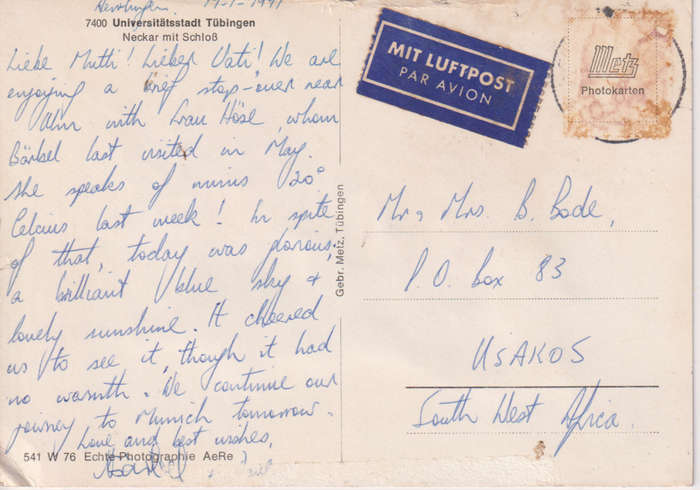 19-1-1971
7400 Universitätsstadt Tübingen
Neckar mit Schloß
Liebe Mutti! Lieber Vati! We are
enjoying a brief stop-over near
Ulm with Frau Höse, whom
Bärbel last visited in May.
She speaks of minus 20°
Celcius last week! In spite
of that, today was glorious;
a brilliant blue sky &
lovely sunshine. It cheered
us to see it, though it had
no warmth. We continue our
journey to Munich tomorrow.
Love and best wishes,
541 W 76 Echte Photographie AeRe
Gebr. Metz, Tübingen
MIT LUFTPOST
PAR AVION
Metz
Photokarten
Mr, Mrs. B. Bode,
P.O. Box 83
USAKOS
South West Africa.